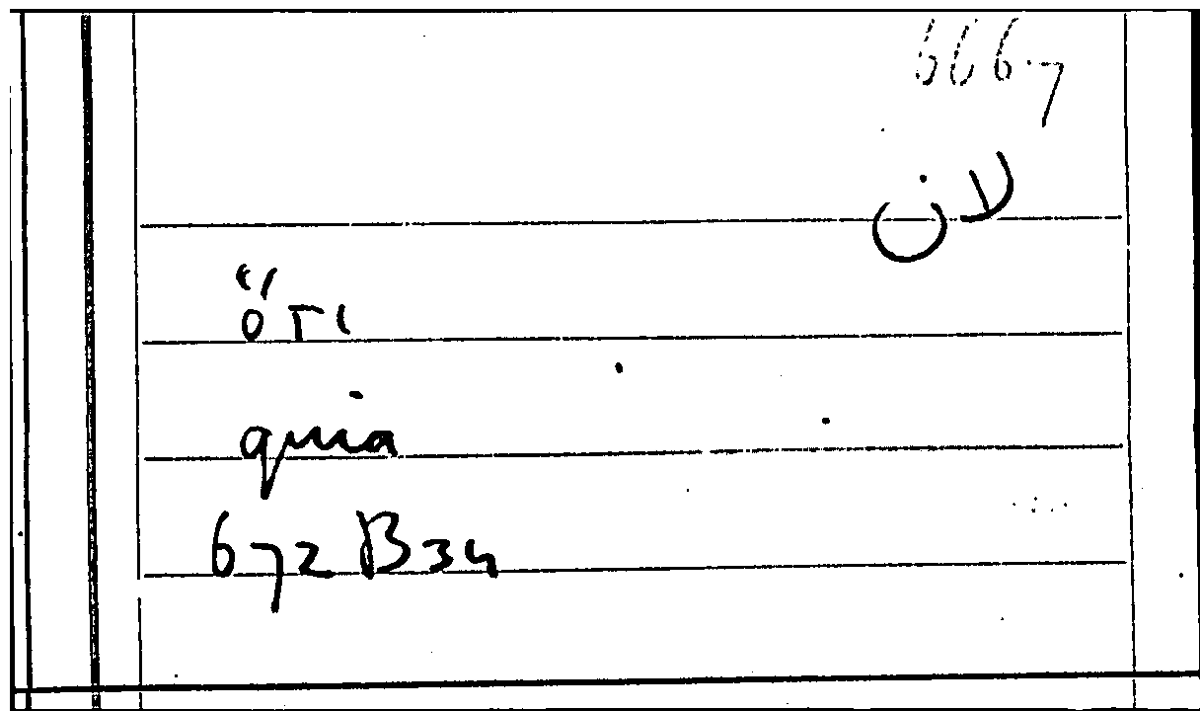 666.7
لان
ὅτι
quia
672 B34